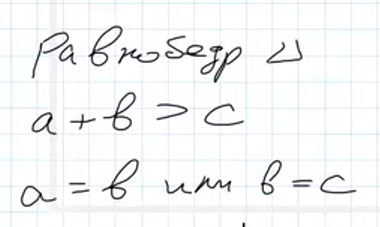 Равнобедр △
a + b > c
a = b или b = c